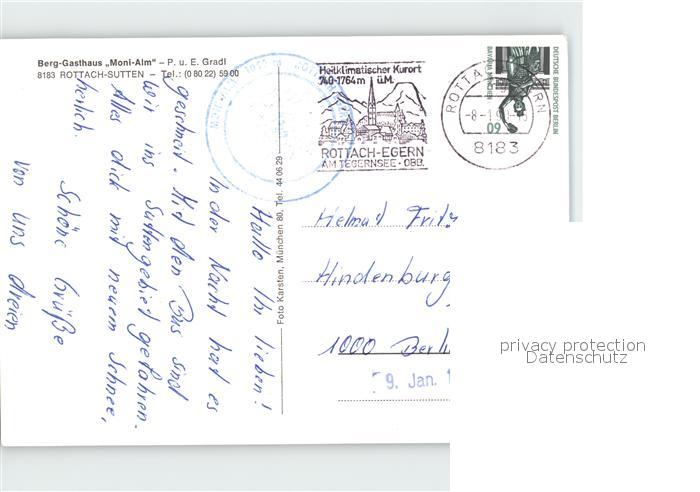 Berg-Gasthaus „Moni-Alm“ – P. u. E. Gradl
8183 ROTTACH-SUTTEN – Tel.: (0 80 22) 59 00
Hallo Ihr lieben!
In der Nacht hat es
geschneit. Mit den Bus sind
wir ins Suttengebiet gefahren.
Alles dick mit neuem Schnee,
herlich.
Schöne Grüße
von uns dreien
Foto Karsten, München 80, Tel. 44 06 29
Heilklimatischer Kurort
740-1764m ü.M.
ROTTACH-EGERN
AM TEGERNSEE · OBB.
8183
DEUTSCHE BUNDESPOST BERLIN
BAVARIA MÜNCHEN
60
Helmut Fritz
Hindenburg
1000 Berli
9. Jan. 1
privacy protection
Datenschutz